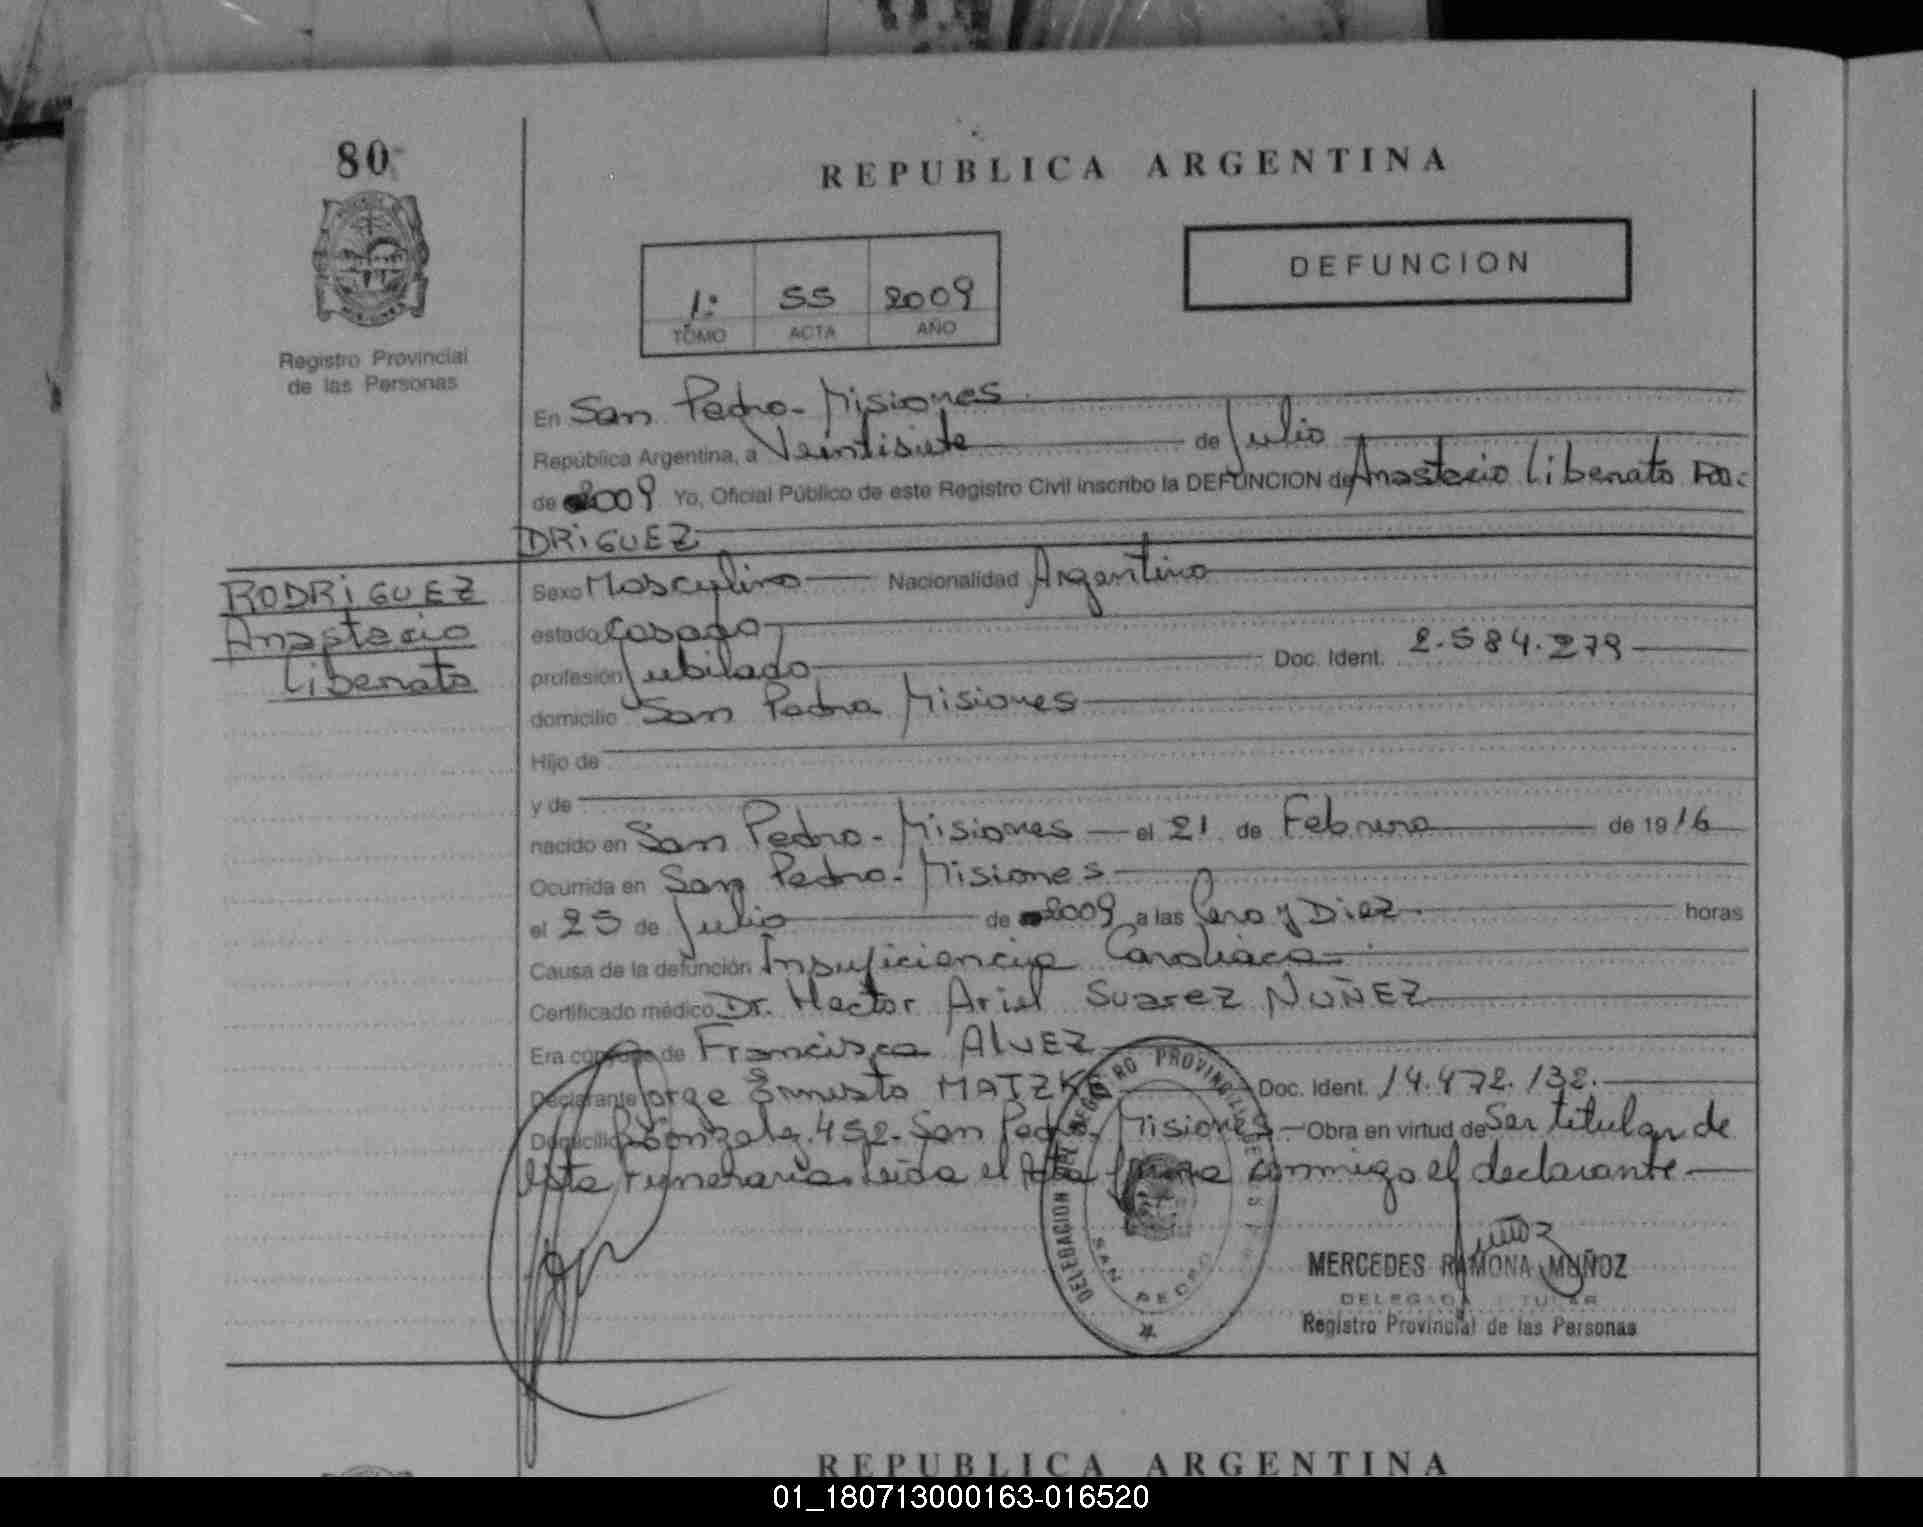 80
REPUBLICA ARGENTINA
DEFUNCION
1: 55 2009
TOMO ACTA AÑO
Registro Provincial
de las Personas
En San Pedro - Misiones
República Argentina, a Veintisiete de Julio
de 2009 Yo, Oficial Público de este Registro Civil inscribo la DEFUNCION de Anastacio Liberato RO-
DRIGUEZ
RODRIGUEZ
Anastacio
Liberato
Sexo Masculino Nacionalidad Argentino
estado Casado
profesión Jubilado Doc. Ident. 2.584.279
domicilio San Pedro Misiones
Hijo de
y de
nacido en San Pedro - Misiones el 21 de Febrero de 1916
Ocurrida en San Pedro - Misiones
el 25 de Julio de 2009 a las Cero y Diez horas
Causa de la defunción Insuficiencia Cardiaca
Certificado médico Dr. Hector Ariel Suarez NUÑEZ
Era conyuge de Francisca AlvEZ
Declarante Jorge Ernesto MATZKE Doc. Ident. 14.472.132.
Domicilio Gonzalez 452 - San Pedro - Misiones - Obra en virtud de Ser titular de
esta Funeraria. Leida el Acta firma conmigo el declarante
DELEGACION DEL REGISTRO PROVINCIAL DE LAS
SAN PEDRO
MERCEDES RAMONA MUÑOZ
DELEGADA TITULAR
Registro Provincial de las Personas
REPUBLICA ARGENTINA
01_180713000163-016520